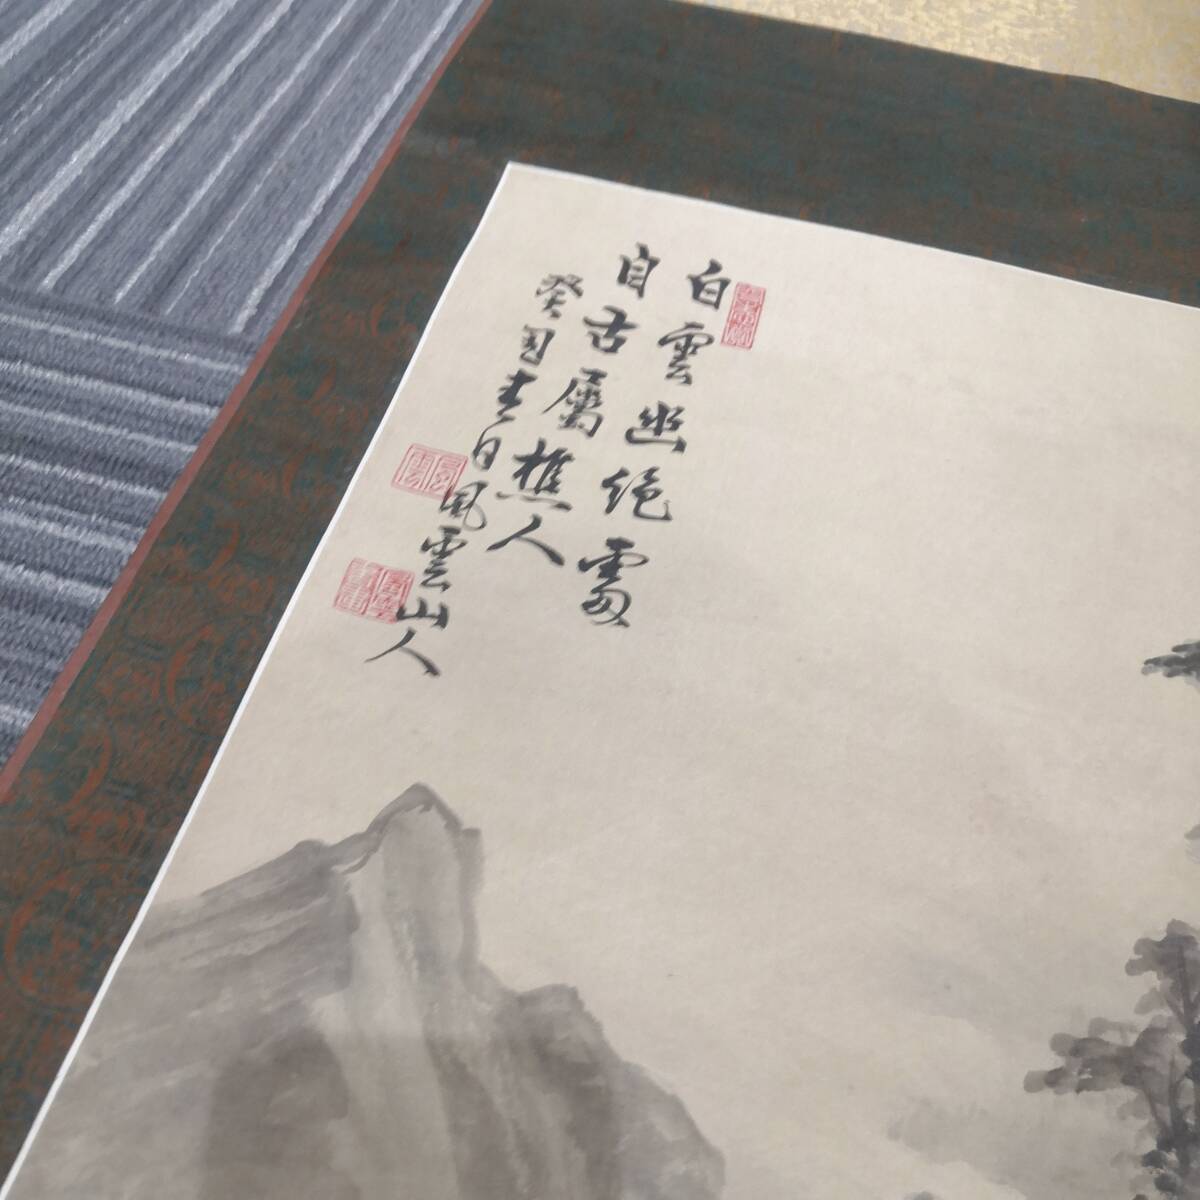 白雲幽絕處
自古屬樵人
癸酉春日風雲山人